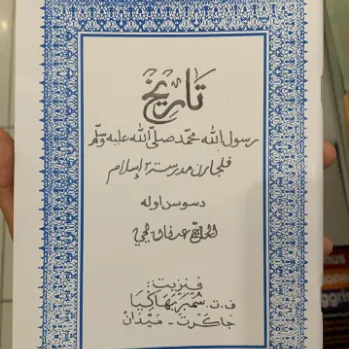 تاريخ
رسول الله محمد صلى الله عليه وسلم
فلجارن مدرسة٢ إسلام
دسوسن اوله
الحاج
ڤنربيت:
ڤ.ت. سمبر بهاڬيا
جاكرت - ميدان